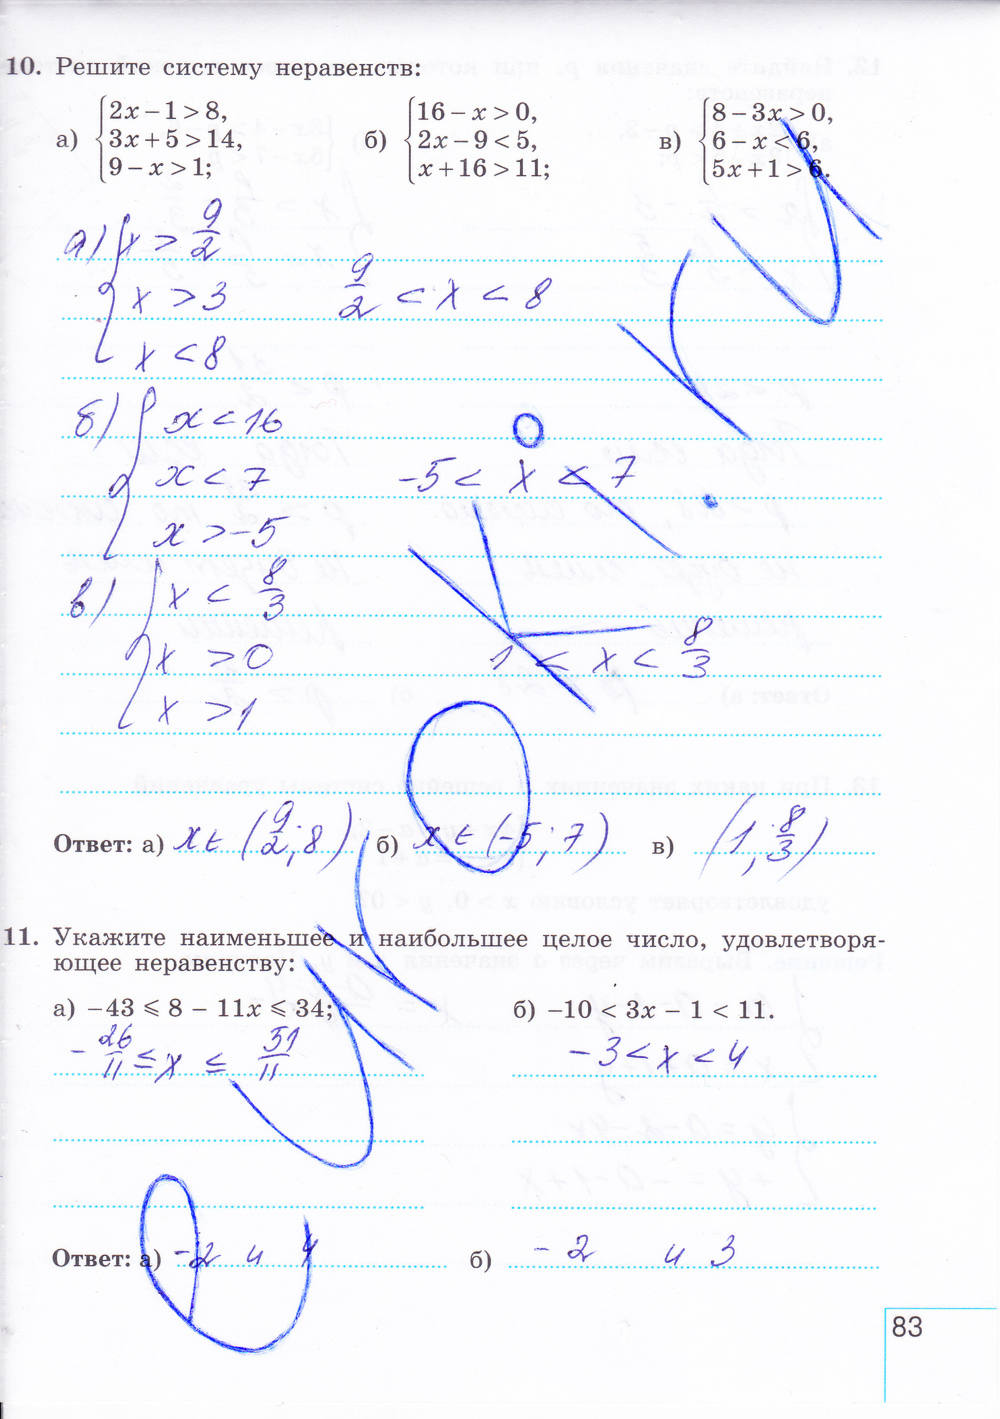 10. Решите систему неравенств:
а) {2x − 1 > 8, 3x + 5 > 14, 9 − x > 1;
б) {16 − x > 0, 2x − 9 < 5, x + 16 > 11;
в) {8 − 3x > 0, 6 − x < 6, 5x + 1 > 6.
а) {x > 9/2
x > 3 9/2 < x < 8
x < 8
б) {x < 16
x < 7 -5 < x < 7
x > -5
в) {x < 8/3
x > 0 1 < x < 8/3
x > 1
Ответ: а) x ∈ (9/2; 8) б) x ∈ (-5; 7) в) (1; 8/3)
11. Укажите наименьшее и наибольшее целое число, удовлетворя-
ющее неравенству:
а) −43 ⩽ 8 − 11x ⩽ 34; б) −10 < 3x − 1 < 11.
-26/11 ≤ x ≤ 51/11 -3 < x < 4
Ответ: а) -2 и 4 б) -2 и 3
83